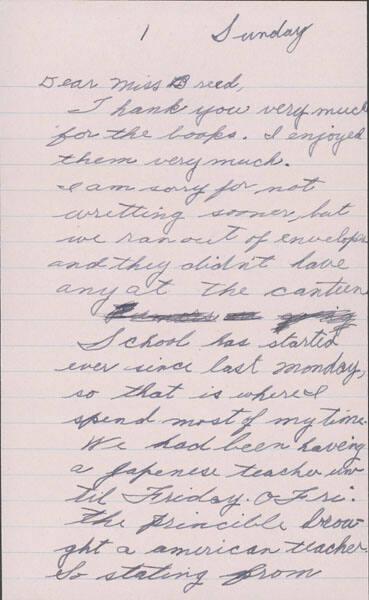 1 Sunday
Dear Miss Breed,
Thank you very much
for the books. I enjoyed
them very much.
I am sorry for not
wretting sooner, but
we ran out of envelopes
and they didn't have
any at the canteen.
School has started
ever since last Monday,
so that is where I
spend most of my time.
We had been having
a Japenese teacher un
til Friday. O Fri.
the princible brow
ght a american teacher.
So stating from